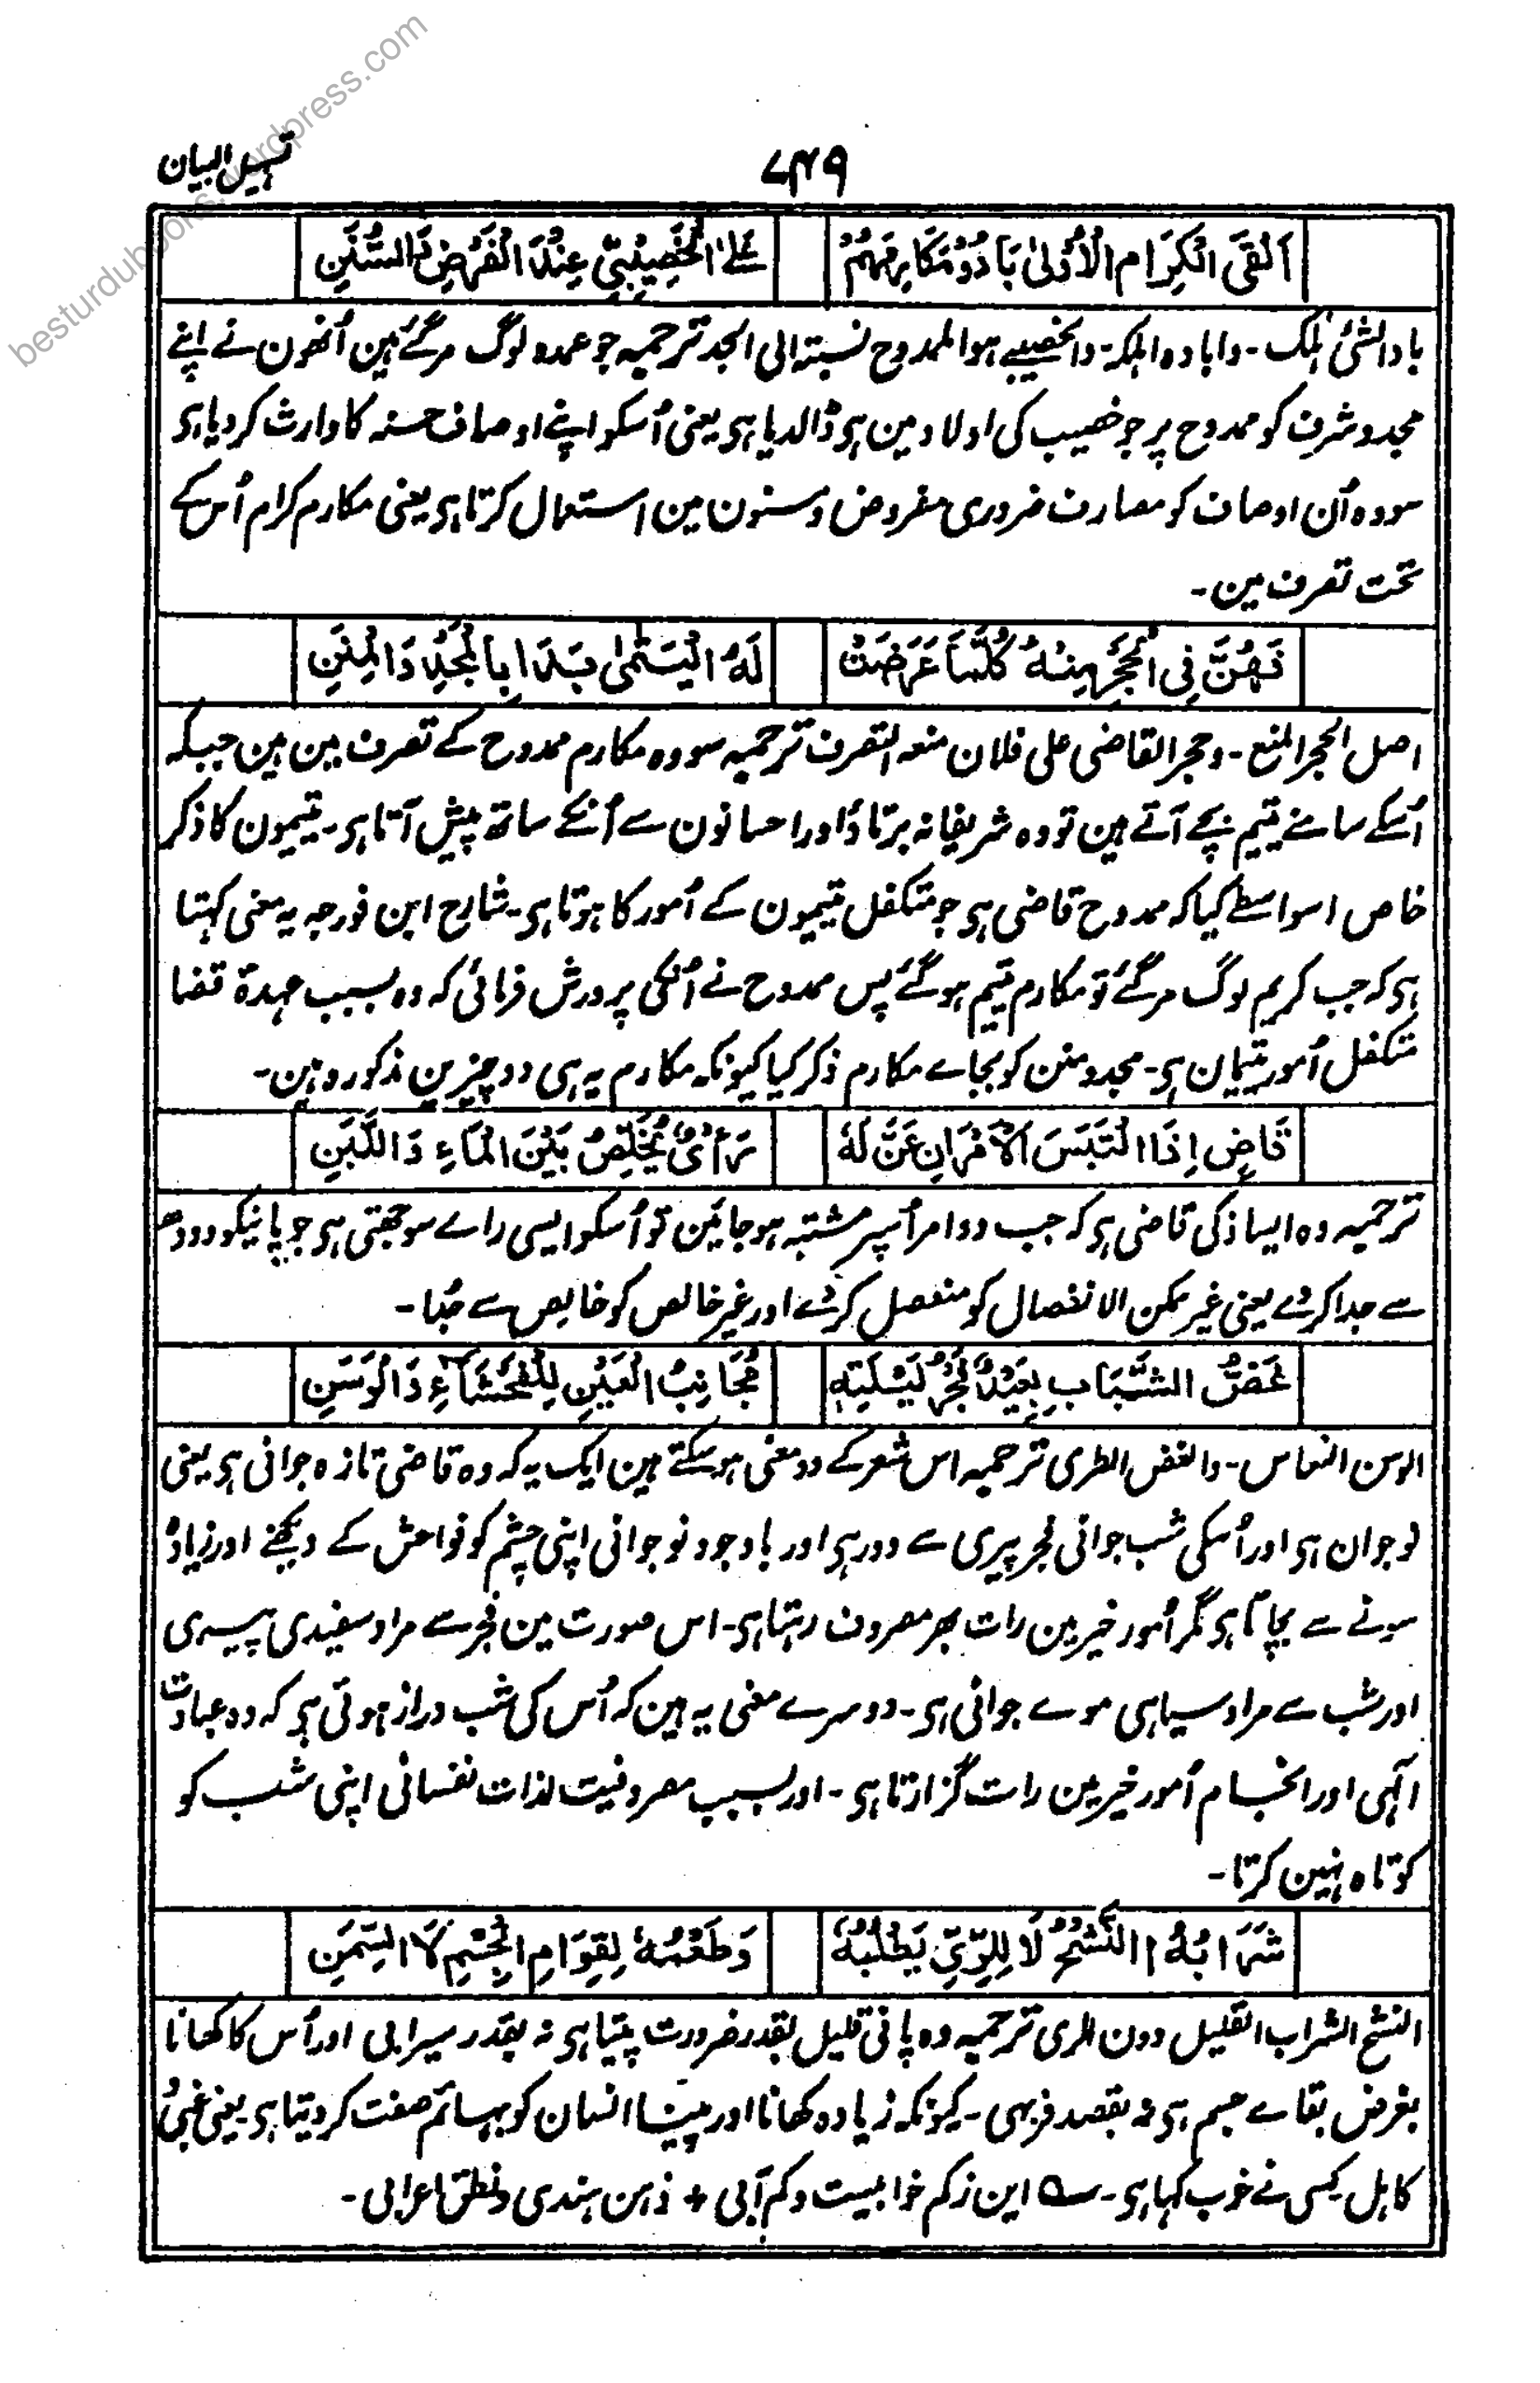 besturdubooks.wordpress.com
تسہیل البیان
۷۴۹
اَلْقَى الْكِرَامُ الْاُوْلٰى بَادُوْا مَكَارِمَهُمْ عَلَى الْخَصِيْبِيِّ عِنْدَ الْفَرْضِ وَالسُّنَنِ
باد الشئ ہلک ۔ وابادہ اہلکہ ۔ والخصیبے ہو الممدوح نسبتہ الی الجد ترجمہ جو عمدہ لوگ مرگئے ہین اُنھون نے اپنے
مجد و شرف کو ممدوح پر جو خصیب کی اولاد مین ہی ڈالدیا ہی یعنی اُسکو اپنے اوصاف حسنہ کا وارث کر دیا ہی
سو وہ اُن اوصاف کو مصارف ضروری مفروض و مسنون مین استعمال کرتا ہی یعنی مکارم کرام اُس کے
تحت تصرف مین ۔
فَهُنَّ فِى الْحَجْرِ مِنْهُ كُلَّمَا عَرَضَتْ لَهُ الْيَتَامٰى بَدَا بِالْمَجْدِ وَالْمِنَنِ
اصل الحجر المنع ۔ وحجر القاضی علی فلان منعہ التصرف ترجمہ سو وہ مکارم ممدوح کے تصرف مین ہین جبکہ
اُسکے سامنے یتیم بچے آتے ہین تو وہ شریفانہ برتاؤ اور احسانون سے اُنکے ساتھ پیش آتا ہی ۔ یتیمون کا ذکر
خاص اسواسطے کیا کہ ممدوح قاضی ہی جو متکفل یتیمون کے اُمور کا ہوتا ہی ۔ شارح ابن فورجہ یہ معنی کہتا
ہی کہ جب کریم لوگ مرگئے تو مکارم یتیم ہو گئے پس ممدوح نے اُنکی پرورش فرمائی کہ وہ بسبب عہدۂ قضا
متکفل اُمور یتیمان ہی ۔ مجد و منن کو بجاے مکارم ذکر کیا کیونکہ مکارم یہ ہی دو چیزین مذکورہ ہین ۔
قَاضٍ اِذَا الْتَبَسَ الْاَمْرَانِ عَنَّ لَهٗ رَأْىٌ يُخَلِّصُ بَيْنَ الْمَاءِ وَاللَّبَنِ
ترجمہ وہ ایسا ذکی قاضی ہی کہ جب دو امر اُسپر مشتبہ ہو جائین تو اُسکو ایسی راے سوجھتی ہی جو پانیکو دودھ
سے جدا کردے یعنی غیر ممکن الانفصال کو منفصل کردے اور غیر خالص کو خالص سے جُدا ۔
غَضُّ الشَّبَابِ بَعِيْدٌ فَجْرُ لَيْلَتِهٖ مُجَانِبُ الْعَيْنِ لِلْفَحْشَاءِ وَالْوَسَنِ
الوسن النعاس ۔ والغض الطری ترجمہ اس شعر کے دو معنی ہو سکتے ہین ایک یہ کہ وہ قاضی تازہ جوانی ہی یعنی
نوجوان ہی اور اُسکی شب جوانی فجر پیری سے دور ہی اور باوجود نوجوانی اپنی چشم کو فواحش کے دیکھنے اور زیادہ
سونے سے بچاتا ہی مگر اُمور خیر مین رات بھر مصروف رہتا ہی ۔ اس صورت مین فجر سے مراد سفیدی پیری
اور شب سے مراد سیاہی موے جوانی ہی ۔ دوسرے معنی یہ ہین کہ اُس کی شب دراز ہوتی ہی کہ وہ عبادت
الٰہی اور انجام اُمور خیر مین رات گزارتا ہی ۔ اور بسبب مصروفیت لذات نفسانی اپنی شب کو
کوتاہ نہین کرتا ۔
شَرَابُهُ النَّشْحُ لَا لِلرِّيِّ يَطْلُبُهٗ وَطَعْمُهٗ لِقِوَامِ الْجِسْمِ لَا السِّمَنِ
النشح الشراب القلیل دون الری ترجمہ وہ پانی قلیل بقدر ضرورت پیتا ہی نہ بقدر سیرابی اور اُس کا کھانا
بغرض بقاے جسم ہی نہ بقصد فربہی ۔ کیونکہ زیادہ کھانا اور پینا انسان کو بہائم صفت کر دیتا ہی ۔ یعنی غبی و
کاہل ۔ کسی نے خوب کہا ہی ۔ ؎ این ز کم خوابیست و کم آبی + ذہن ہندی و نطق اعرابی ۔